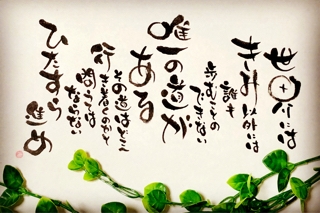 世界には
きみ以外には
誰も
歩むことの
できない
唯一の道が
ある
その道はどこに
行き着くのかと
問うては
ならない
ひたすら
進め